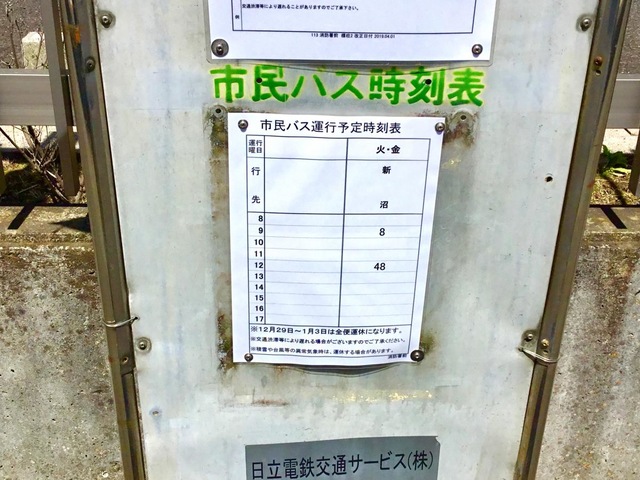 交通渋滞等により遅れることがありますのでご了承下さい。
市民バス時刻表
市民バス運行予定時刻表
運行曜日 火・金
行先 新沼
8
9 8
10
11
12 48
13
14
15
16
17
※12月29日~1月3日は全便運休になります。
※交通渋滞等により遅れる場合がございますのでご了承ください。
※積雪や台風等の異常気象時は、運休する場合があります。
消防署前
日立電鉄交通サービス(株)